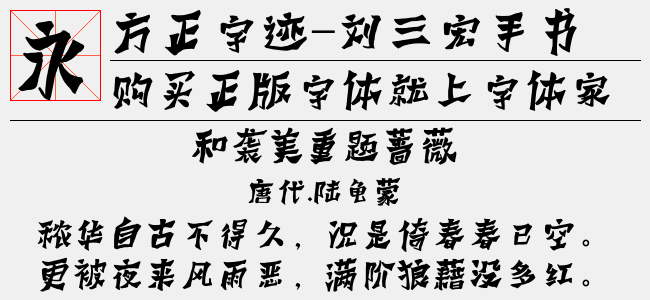 永
方正字迹-刘三宏手书
购买正版字体就上字体家
和袭美重题蔷薇
唐代.陆龟蒙
秾华自古不得久，况是倚春春已空。
更被夜来风雨恶，满阶狼藉没多红。